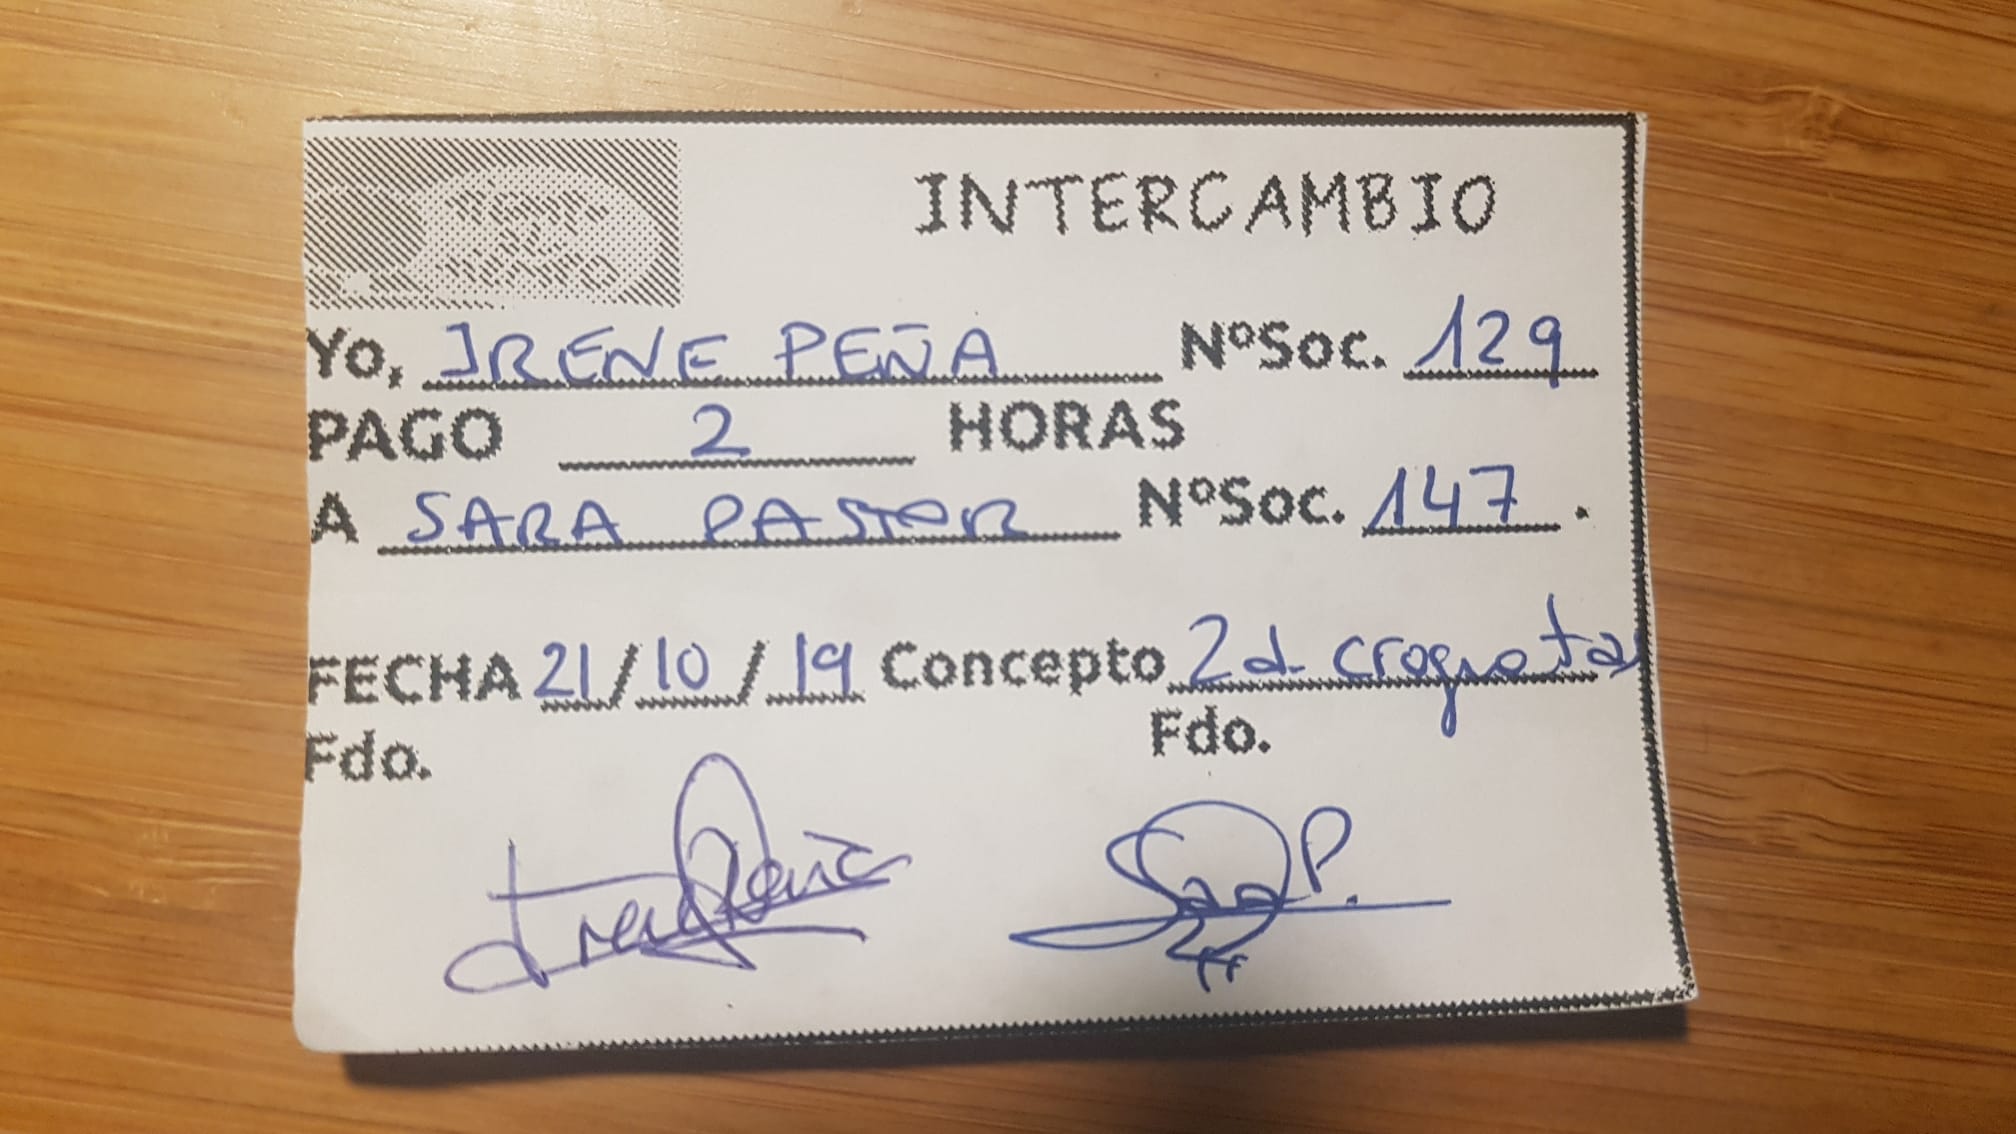 INTERCAMBIO
Yo, IRENE PEÑA NºSoc. 129
PAGO 2 HORAS
A SARA PASTOR NºSoc. 147.
FECHA 21/10/19 Concepto 2d croquetas
Fdo. Fdo.
Irene Peña Sara P.